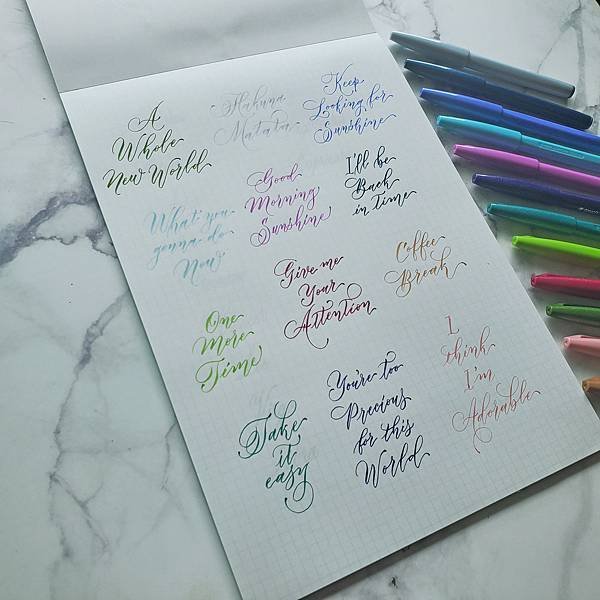 A
Whole
New World
Hakuna
Matata
Keep
Looking for
Sunshine
What you
gonna do
Now
Good
Morning
Sunshine
I'll be
Back
in time
One
More
Time
Give me
Your
Attention
Coffee
Break
Take
it
easy
You're too
Precious
for this
World
I
think
I'm
Adorable